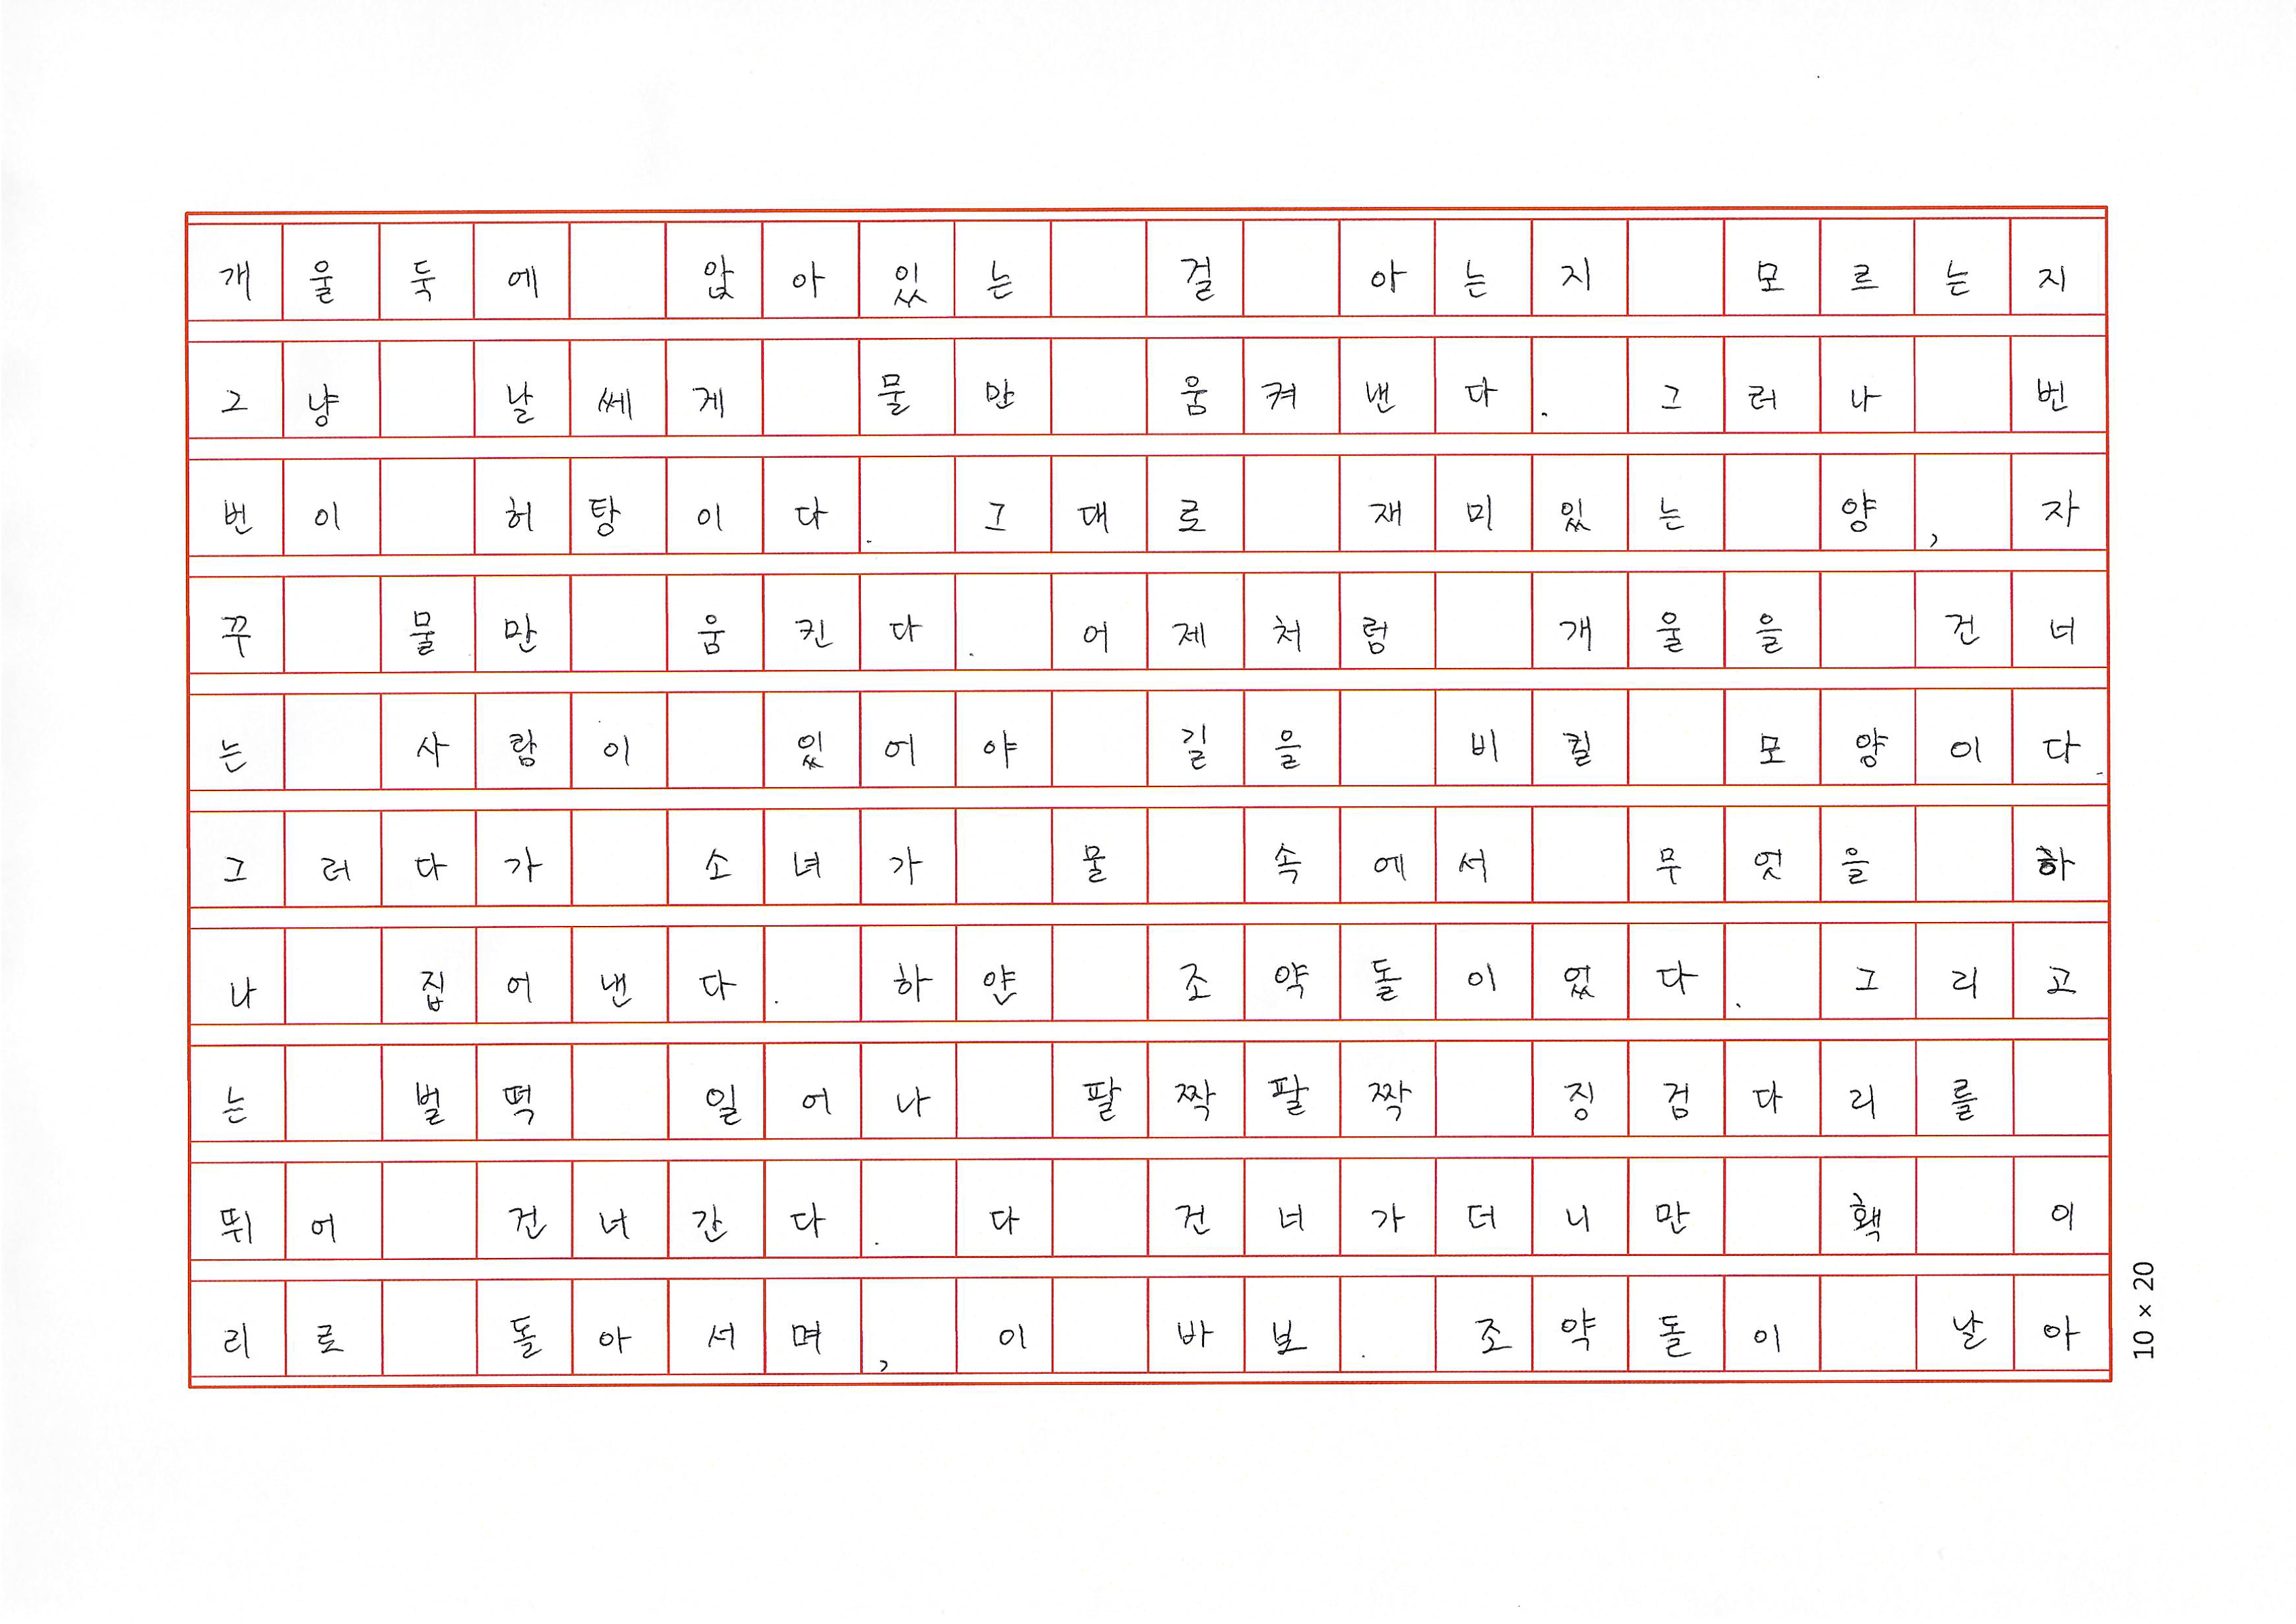 개울둑에 앉아있는 걸 아는지 모르는지
그냥 날쎄게 물만 움켜낸다. 그러나 번
번이 허탕이다. 그대로 재미있는 양, 자
꾸 물만 움킨다. 어제처럼 개울을 건너
는 사람이 있어야 길을 비킬 모양이다.
그러다가 소녀가 물 속에서 무엇을 하
나 집어낸다. 하얀 조약돌이었다. 그리고
는 벌떡 일어나 팔짝팔짝 징검다리를
뛰어 건너간다. 다 건너가더니만 홱 이
리로 돌아서며, 이 바보. 조약돌이 날아
10 × 20